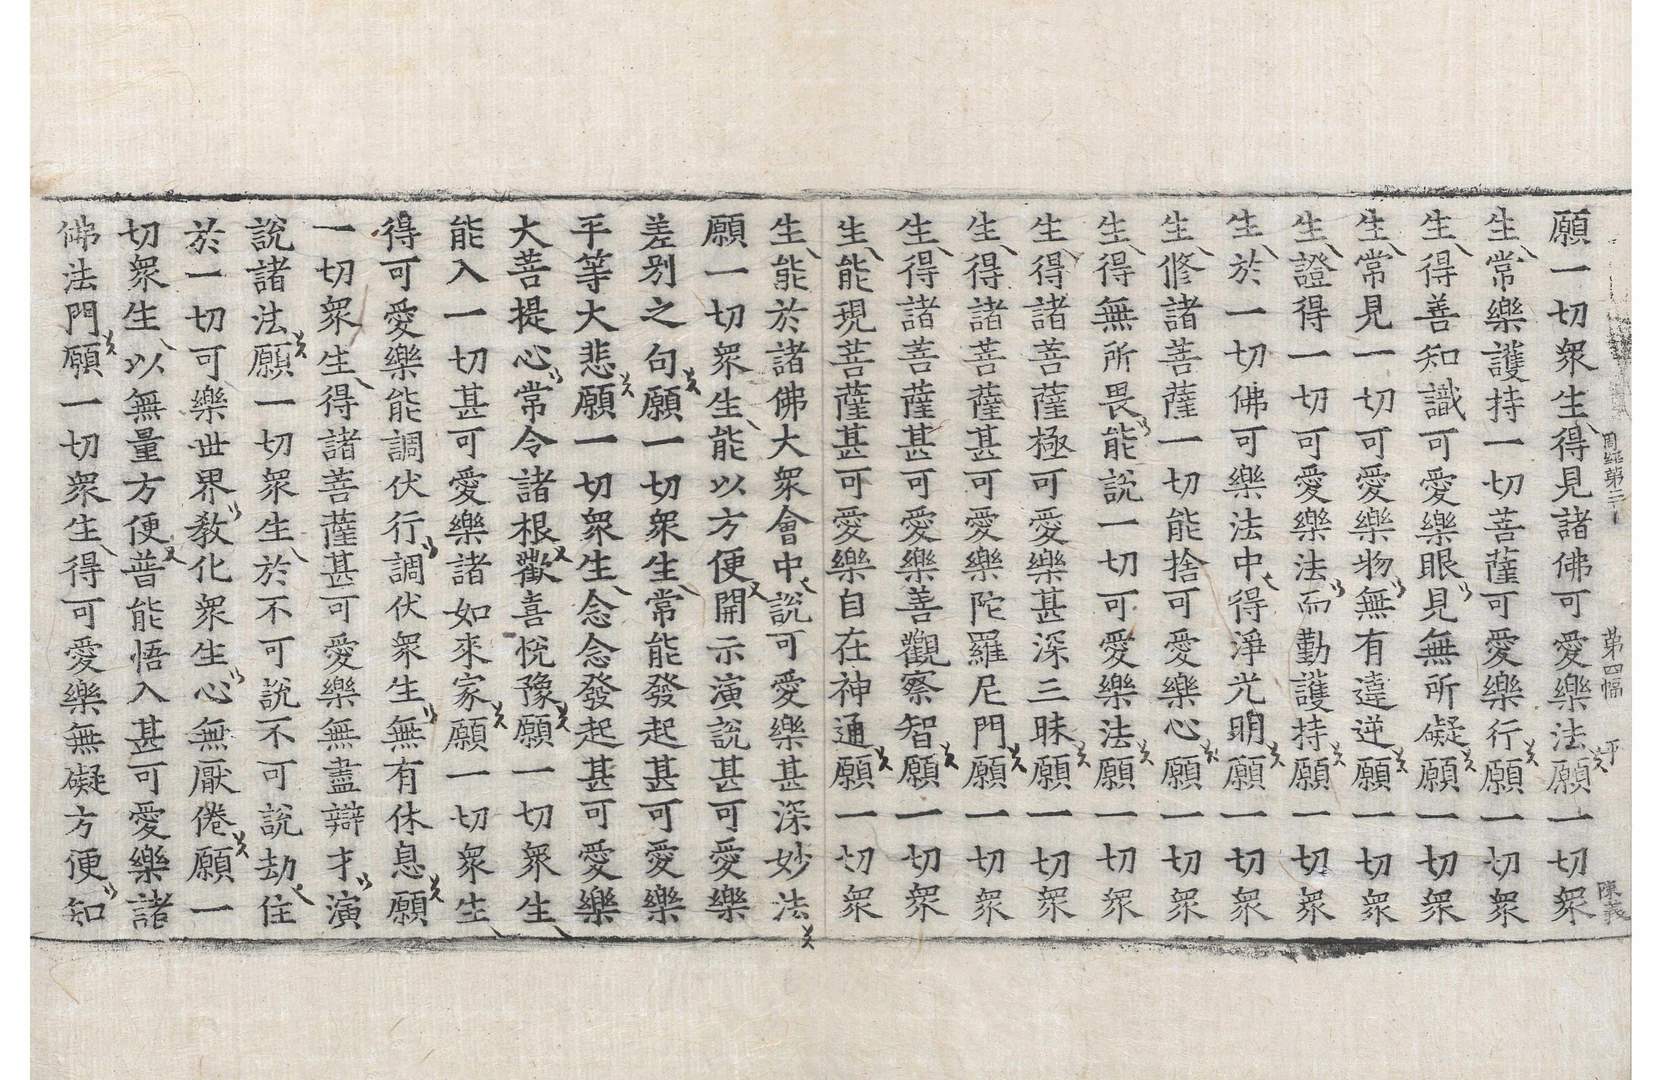 周經第二十
第四幅
平
陳義
願一切衆生得見諸佛可愛樂法願一切衆
生常樂護持一切菩薩可愛樂行願一切衆
生得善知識可愛樂眼見無所礙願一切衆
生常見一切可愛樂物無有違逆願一切衆
生證得一切可愛樂法而勤護持願一切衆
生於一切佛可樂法中得淨光明願一切衆
生修諸菩薩一切能捨可愛樂心願一切衆
生得無所畏能說一切可愛樂法願一切衆
生得諸菩薩極可愛樂甚深三昧願一切衆
生得諸菩薩甚可愛樂陀羅尼門願一切衆
生得諸菩薩甚可愛樂善觀察智願一切衆
生能現菩薩甚可愛樂自在神通願一切衆
生能於諸佛大衆會中說可愛樂甚深妙法
願一切衆生能以方便開示演說甚可愛樂
差別之句願一切衆生常能發起甚可愛樂
平等大悲願一切衆生念念發起甚可愛樂
大菩提心常令諸根歡喜悅豫願一切衆生
能入一切甚可愛樂諸如來家願一切衆生
得可愛樂能調伏行調伏衆生無有休息願
一切衆生得諸菩薩甚可愛樂無盡辯才演
說諸法願一切衆生於不可說不可說劫住
於一切可樂世界教化衆生心無厭倦願一
切衆生以無量方便普能悟入甚可愛樂諸
佛法門願一切衆生得可愛樂無礙方便知